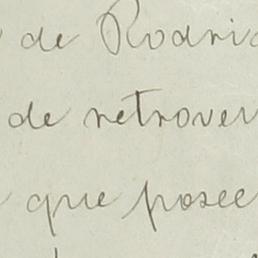 de Rodri
de retrover
que posee